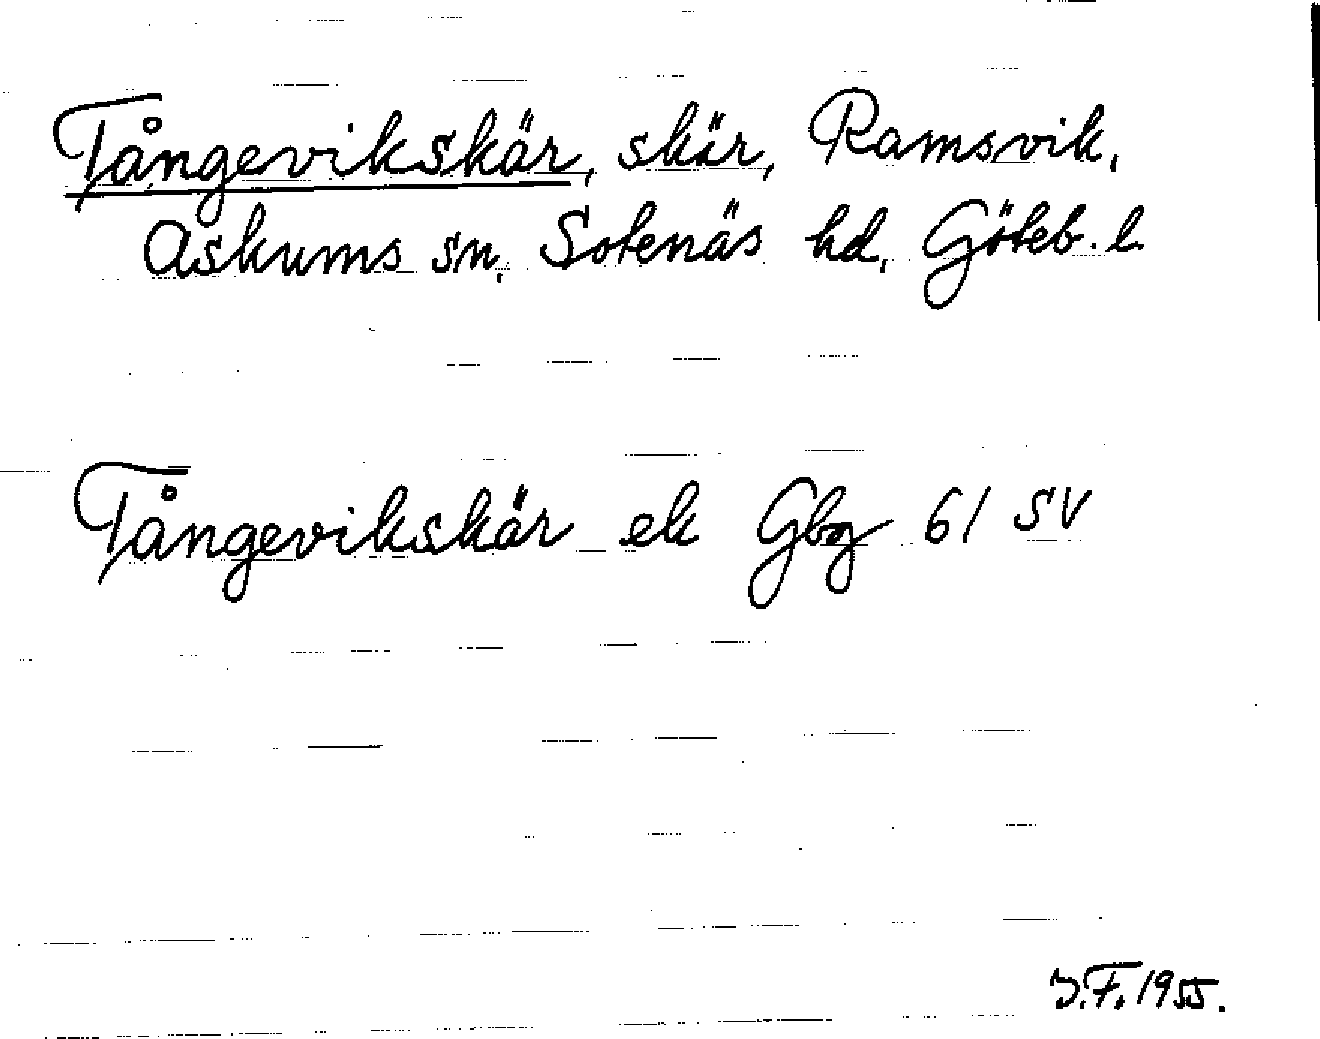 Tångevikskär, skär, Ramsvik,
Askums sn, Sotenäs hd, Göteb. l.
Tångevikskär ek Gbg 61 SV
J.F. 1955.